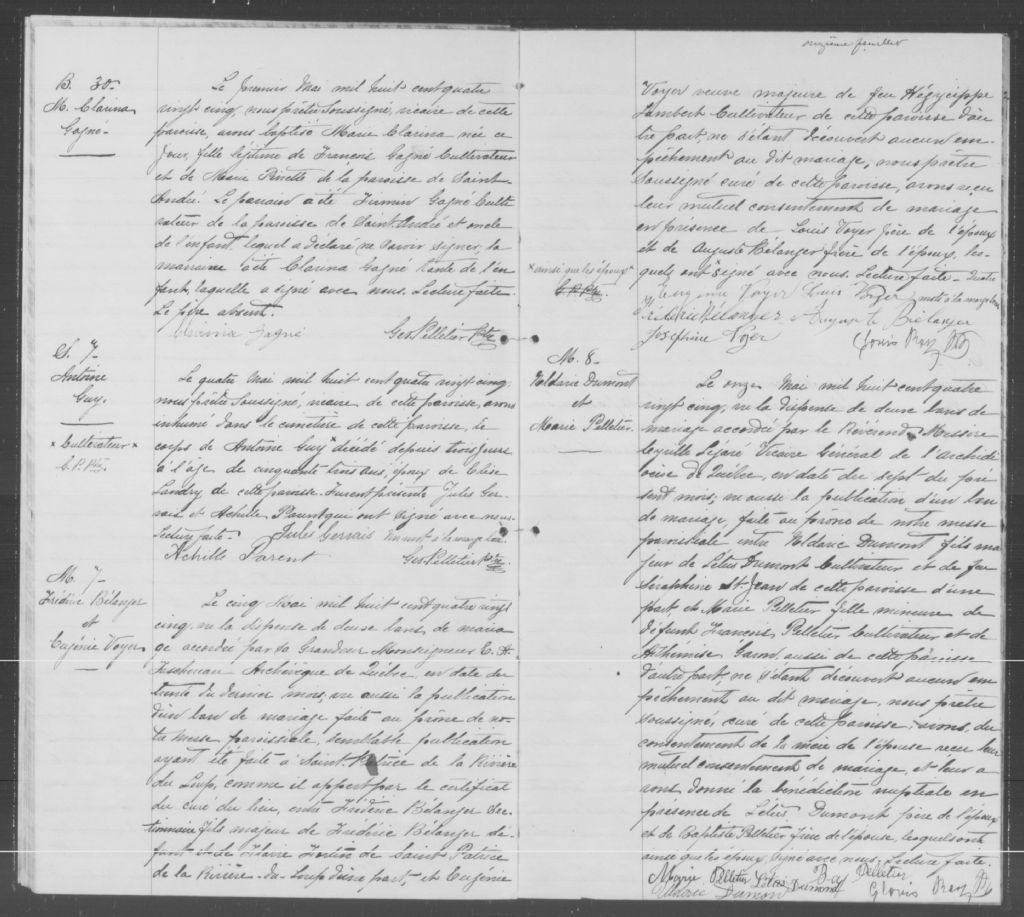 B. 30-
M. Clarina
Gagné-
Le premier Mai mil huit cent quatre
vingt cinq, nous prêtre soussigné, vicaire de cette
paroisse, avons baptisé Marie Clarina née ce
jour, fille légitime de François Gagné Cultivateur
et de Marie Pinette de la paroisse de Saint
André. Le parrain a été Firmin Gagné Culti
vateur de la paroisse de Saint-André et oncle
de l'enfant, lequel a déclaré ne savoir signer, la
marraine a été Clarina Gagné tante de l'en
fant, laquelle a signé avec nous. Lecture faite.
Le père absent.
Clarina Gagné Geo Pelletier Ptre
S. 7-
Antoine
Guy.
× Cultivateur ×
G. P. Ptre
Le quatre Mai mil huit cent quatre vingt cinq,
nous prêtre soussigné, vicaire de cette paroisse, avons
inhumé dans le cimetière de cette paroisse, le
corps de Antoine Guy × décédé depuis trois jours
à l'âge de cinquante trois ans, époux de Elise
Landry de cette paroisse. Furent présents Jules Ger-
vais et Achille Parent qui ont signé avec nous.
Lecture faite- Jules Gervais un mot à la marge bon.
Achille Parent Geo Pelletier Ptre
M. 7-
Frédéric Bélanger
et
Eugénie Voyer
Le cinq Mai mil huit cent quatre vingt
cinq, vu la dispense de deux bans de maria
ge accordée par sa Grandeur Monseigneur E. A.
Taschereau Archevêque de Québec, en date du
trente du dernier mois, vu aussi la publication
d'un ban de mariage faite au prône de no-
tre messe paroissiale, semblable publication
ayant été faite à Saint-Patrice de la Rivière
du Loup, comme il appert par le certificat
du curé du lieu, entre Frédéric Bélanger Sec-
tionnaire fils majeur de Frédéric Bélanger dé-
funt et de Flavie Fortin de Saint Patrice
de la Rivière-du-Loup d'une part, et Eugénie
onzième feuillet
Voyer veuve majeure de feu Hégésippe
Lambert Cultivateur de cette paroisse d'au
tre part, ne s'étant découvert aucun em-
pêchement au dit mariage, nous prêtre
soussigné curé de cette paroisse, avons reçu
leur mutuel consentement de mariage
en présence de Louis Voyer père de l'épouse
et de Auguste Bélanger frère de l'époux, les-
quels ont × signé avec nous. Lecture faite- Quatre
× ainsi que les époux ×
mots à la marge bon
Eugénie Voyer Louis Voyer
Auguste Bélanger
Joséphine Voyer Clouis Roy Ptre
M. 8-
Eldaric Dumont
et
Marie Pelletier.
Le onze Mai mil huit cent quatre
vingt cinq, vu la dispense de deux bans de
mariage accordée par le Révérend Messire
Cyrille Légaré Vicaire Général de l'archidi
ocèse de Québec, en date du sept du pré
sent mois, vu aussi la publication d'un ban
de mariage, faite au prône de notre messe
paroissiale entre Eldaric Dumont fils ma
jeur de Létus Dumont Cultivateur et de feu
Séraphine St Jean de cette paroisse d'une
part et Marie Pelletier fille mineure de
défunt François Pelletier Cultivateur et de
Arthémise Garon, aussi de cette paroisse
d'autre part, ne s'étant découvert aucun em
pêchement au dit mariage, nous prêtre
soussigné, curé de cette paroisse avons, du
consentement de la mère de l'épouse reçu leur
mutuel consentement de mariage, et leur a
vons donné la bénédiction nuptiale en
présence de Létus Dumont père de l'époux
et de Baptiste Pelletier frère de l'épouse, lesquels ont
ainsi que les époux, signé avec nous. Lecture faite.
Marie Pelletier Létus Dumont Bap Pelletier
Eldaric Dumont Clouis Roy Ptre